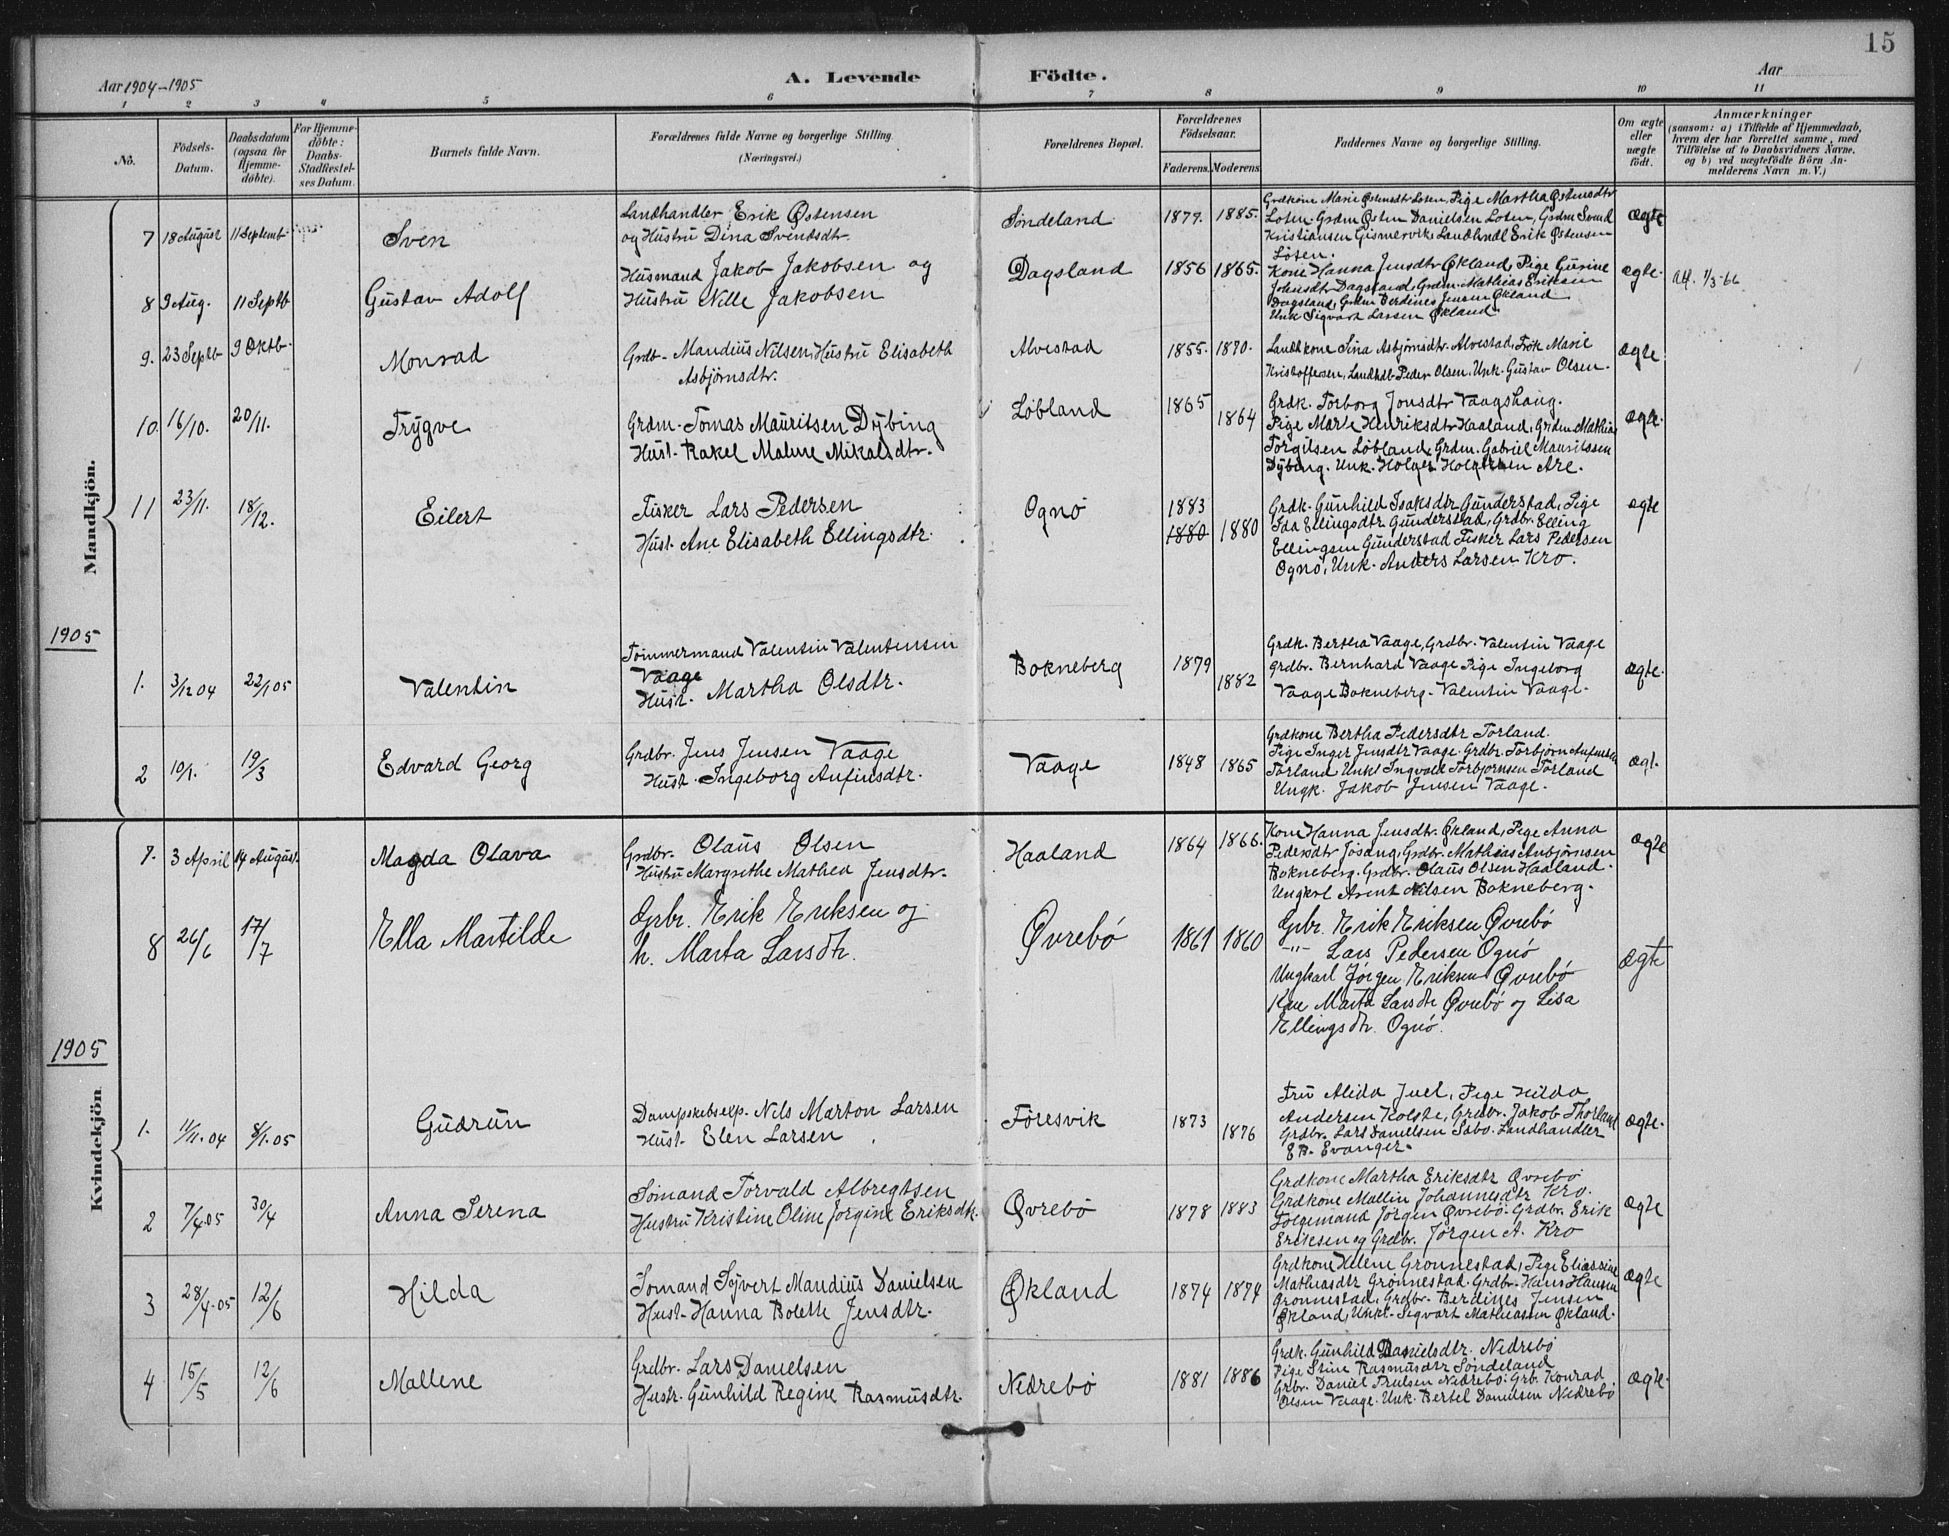 15
Aar 1904-1905
A. Levende Födte.
Aar
1 2 3 4 5 6 7 8 9 10 11
No.
Födsels-Datum.
Daabsdatum (ogsaa for Hjemmedöbte).
For Hjemmedöbte: Daabs-Stadfæstelses Datum.
Barnets fulde Navn.
Forældrenes fulde Navne og borgerlige Stilling. (Næringsvei.)
Forældrenes Bopæl.
Forældrenes Födselsaar.
Faderens. Moderens.
Faddernes Navne og borgerlige Stilling.
Om ægte eller uægte födt.
Anmærkninger
(saasom: a) i Tilfælde af Hjemmedaab, hvem der har forrettet samme, med Tilföielse af to Daabsvidners Navne, og b) ved uægtefödte Börn Anmelderens Navn m. V.)
Mandkjön.
7 18 August 11 Septemb. Sven
Landhandler Erik Østensen
og Hustru Dina Svendsdtr.
Søndeland 1879. 1885.
Grdkone Marie Østensdtr Loten, Pige Martha Østensdtr
Loten. Grdm Østen Danielsen Loten, Grdm Svend
Kristiansen Gismervik, Landhndl Erik Østensen
Løten.
ægte
8 9 Aug. 11 Septb Gustav Adolf
Husmand Jakob Jakobsen og
Hustru Nille Jakobsen
Dagsland 1856 1865.
Kone Hanna Jensdtr Økland, Pige Gurine
Johnsdtr Dagsland, Grdm. Mathias Eriksen
Dagsland, Grdm Berdines Jensen Økland
Unk Sigvart Larsen Økland.
ægte. Att. 1/3-66
9. 23 Septb 9 Oktb. Monrad
Grdb. Mandius Nilsen, Hustru Elisabeth
Asbjørnsdtr.
Alvestad 1855. 1870.
Landhkone Sina Asbjørnsdtr. Alvestad, Frøk Marie
Kristoffersen, Landhdb Peder Olsen, Unk. Gustav Olsen.
ægte
10. 16/10. 20/11. Trygve
Grdm. Tomas Mauritsen Dybing
Hust. Rakel Malene Mikalsdtr.
Løbland 1865 1864
Grdk. Torborg Jonsdtr Vaagshaug.
Pige Marte Henriksdtr Haaland, Grdm. Mathias
Torgilsen Løbland, Grdm. Gabriel Mauritssen
Dybing. Unk. Holger Holgersen Are.
ægte.
11 23/11. 18/12. Eilert
Fisker Lars Pedersen
Hust. Ane Elisabeth Ellingsdtr.
Ognø 1883 1880 1880
Grdk. Gunhild Isaksdtr Gunderstad, Pige
Ida Ellingsdtr Gunderstad, Grdbr. Elling
Ellingsen Gunderstad Fisker Lars Pedersen
Ognø, Unk. Anders Larsen Kro.
ægte
1905
1. 3/12 04 22/1 05 Valentin
Tømmermand Valentin Valentinsen
Vaage
Hust. Martha Olsdtr.
Bokneberg 1879 1882
Grdk. Bertha Vaage, Grdbr. Valentin Vaage
Grdbr. Bernhard Vaage Pige Ingeborg
Vaage Bokneberg. Valentin Vaage.
ægte.
2 10/1. 19/3 Edvard Georg
Grdbr. Jens Jensen Vaage
Hust. Ingeborg Anfinsdtr.
Vaage 1848 1865
Grdkone Bertha Pedersdtr Torland.
Pige Inger Jensdtr Vaage. Grdbr. Torbjørn Anfinsen
Torland Unkl Ingvald Torbjørnsen Torland
Ungk. Jakob Jensen Vaage.
ægt.
Kvindekjön
7. 3 April 14 August. Magda Olava
Grdbr. Olaus Olsen
Hustru Margrethe Mathea Jensdtr.
Haaland 1864 1866.
Kone Hanna Jensdtr. Økland, Pige Anna
Pedersdtr Jøsang, Grdbr. Mathias Anbjørnsen
Bokneberg. Grdbr. Olaus Olsen Haaland.
Ungkrl Arent Nilsen Bokneberg.
ægte
8 26/6 17/7 Ella Martilde
Grbr. Erik Eriksen og
h. Marta Larsdtr.
Øvrebö 1861 1860
Grbr. Erik Eriksen Øvrebö
-"- Lars Pedersen Ognö
Ungkarl Jörgen Eriksen Øvrebö
Kone Marta Larsdtr Øvrebö og Lisa
Ellingsdtr. Ognö.
ægte
1905
1. 11/11.04 8/1.05 Gudrun
Dampskibsexp. Nils Marton Larsen
Hust. Elen Larsen
Føresvik 1873 1876
Fru Alida Juel, Pige Hilda
Andersen Holste, Grdbr. Jakob Thorland
Grdbr. Lars Danielsen Sabø. Landhandler
E B. Evanger.
ægte.
2 7/4.05 30/4 Anna Serena
Sømand Torvald Albregtsen
Hustru Kristine Oline Jorgine Eriksdtr.
Øvrebø 1878 1883
Grdkone Martha Eriksdtr Øvrebø
Grdkone Mallin Johannesdtr Kro.
Følgemand Jørgen Øvrebø. Grdbr. Erik
Eriksen og Grdbr. Jørgen A. Kro
ægte
3 28/4.05 12/6 Hilda
Sømand Syvert Mandius Danielsen
Hust. Hanna Bolette Jensdtr.
Økland 1874 1874
Grdkone Helene Grønnestad, Pige Eliassine
Mathiasdtr Grønnestad. Grdbr. Hans Hansen
Grønnestad, Grdbr. Berdines Jensen
Økland, Unkl. Sigvart Mathiassen Økland.
ægte
4 15/5 12/6 Mallene
Grdbr. Lars Danielsen
Hustr. Gunhild Regine Rasmusdtr.
Nedrebø 1881 1886
Grdk. Gunhild Danielsdtr. Nedrebø
Pige Stine Rasmusdtr Søndeland
Grbr. Daniel Trulsen Nedrebø. Grb. Konrad
Olsen Vaage. Unk. Bertel Danielsen Nedrebø
ægte.